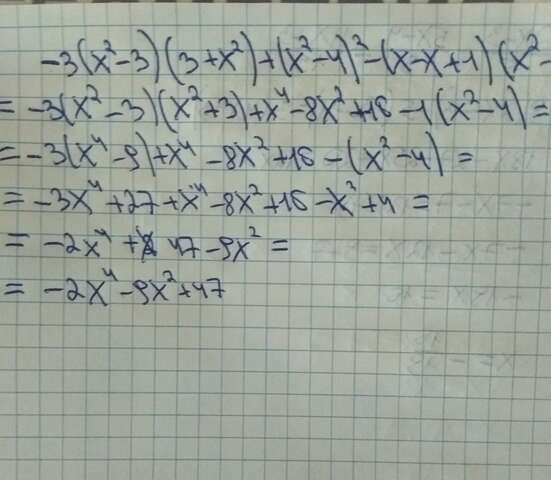 -3(x²-3)(3+x²)+(x²-4)²-(x-x+1)(x²-
= -3(x²-3)(x²+3)+x⁴-8x²+16-1(x²-4)=
= -3(x⁴-9)+x⁴-8x²+16-(x²-4)=
= -3x⁴+27+x⁴-8x²+16-x²+4=
= -2x⁴+47-9x²=
= -2x⁴-9x²+47